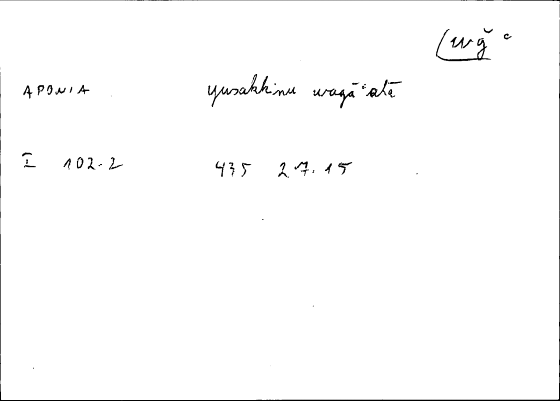 (wǧʿ
APONIA yusakkinu waǧaʿahā
I 102.2 435 27.15